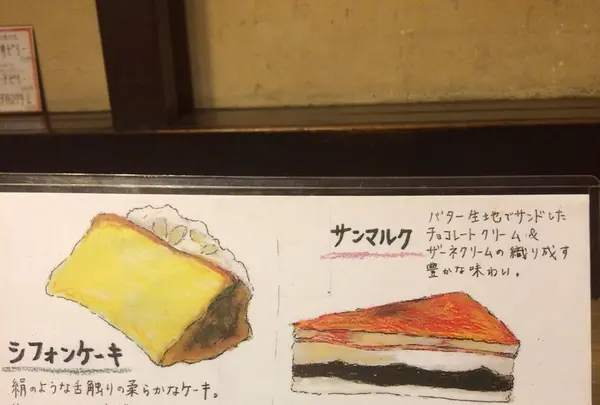 サンマルク
バター生地でサンドした
チョコレートクリーム&
ザーネクリームの織り成す
豊かな味わい。
シフォンケーキ
絹のような舌触りの柔らかなケーキ。